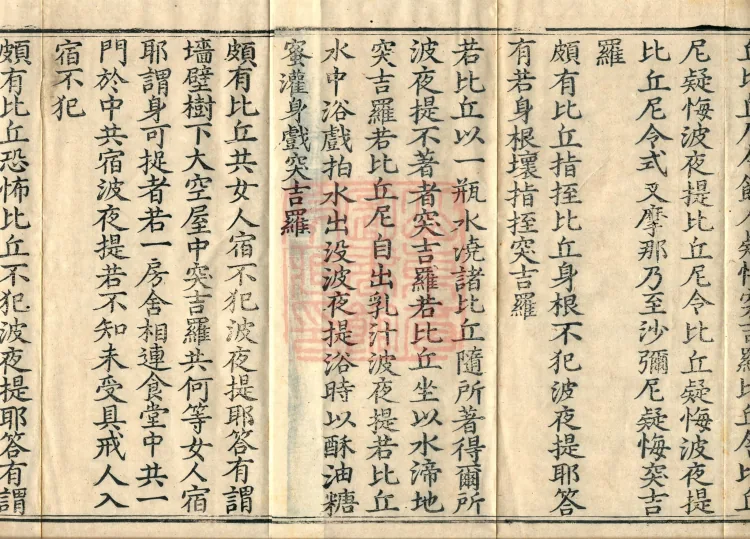 人疑悔突吉羅比丘令比丘
尼疑悔波夜提比丘尼令比丘疑悔波夜提
比丘尼令式叉摩那乃至沙彌尼疑悔突吉
羅
頗有比丘指挃比丘身根不犯波夜提耶答
有若身根壞指挃突吉羅
若比丘以一瓶水澆諸比丘隨所著得爾所
波夜提不著者突吉羅若比丘坐以水渧地
突吉羅若比丘尼自出乳汁波夜提若比丘
水中浴戲拍水出没波夜提浴時以酥油糖
蜜灌身戲突吉羅
頗有比丘共女人宿不犯波夜提耶答有謂
墻壁樹下大空屋中突吉羅共何等女人宿
耶謂身可捉者若一房舍相連食堂中共一
門於中共宿波夜提若不知未受具戒人入
宿不犯
頗有比丘恐怖比丘不犯波夜提耶答有謂